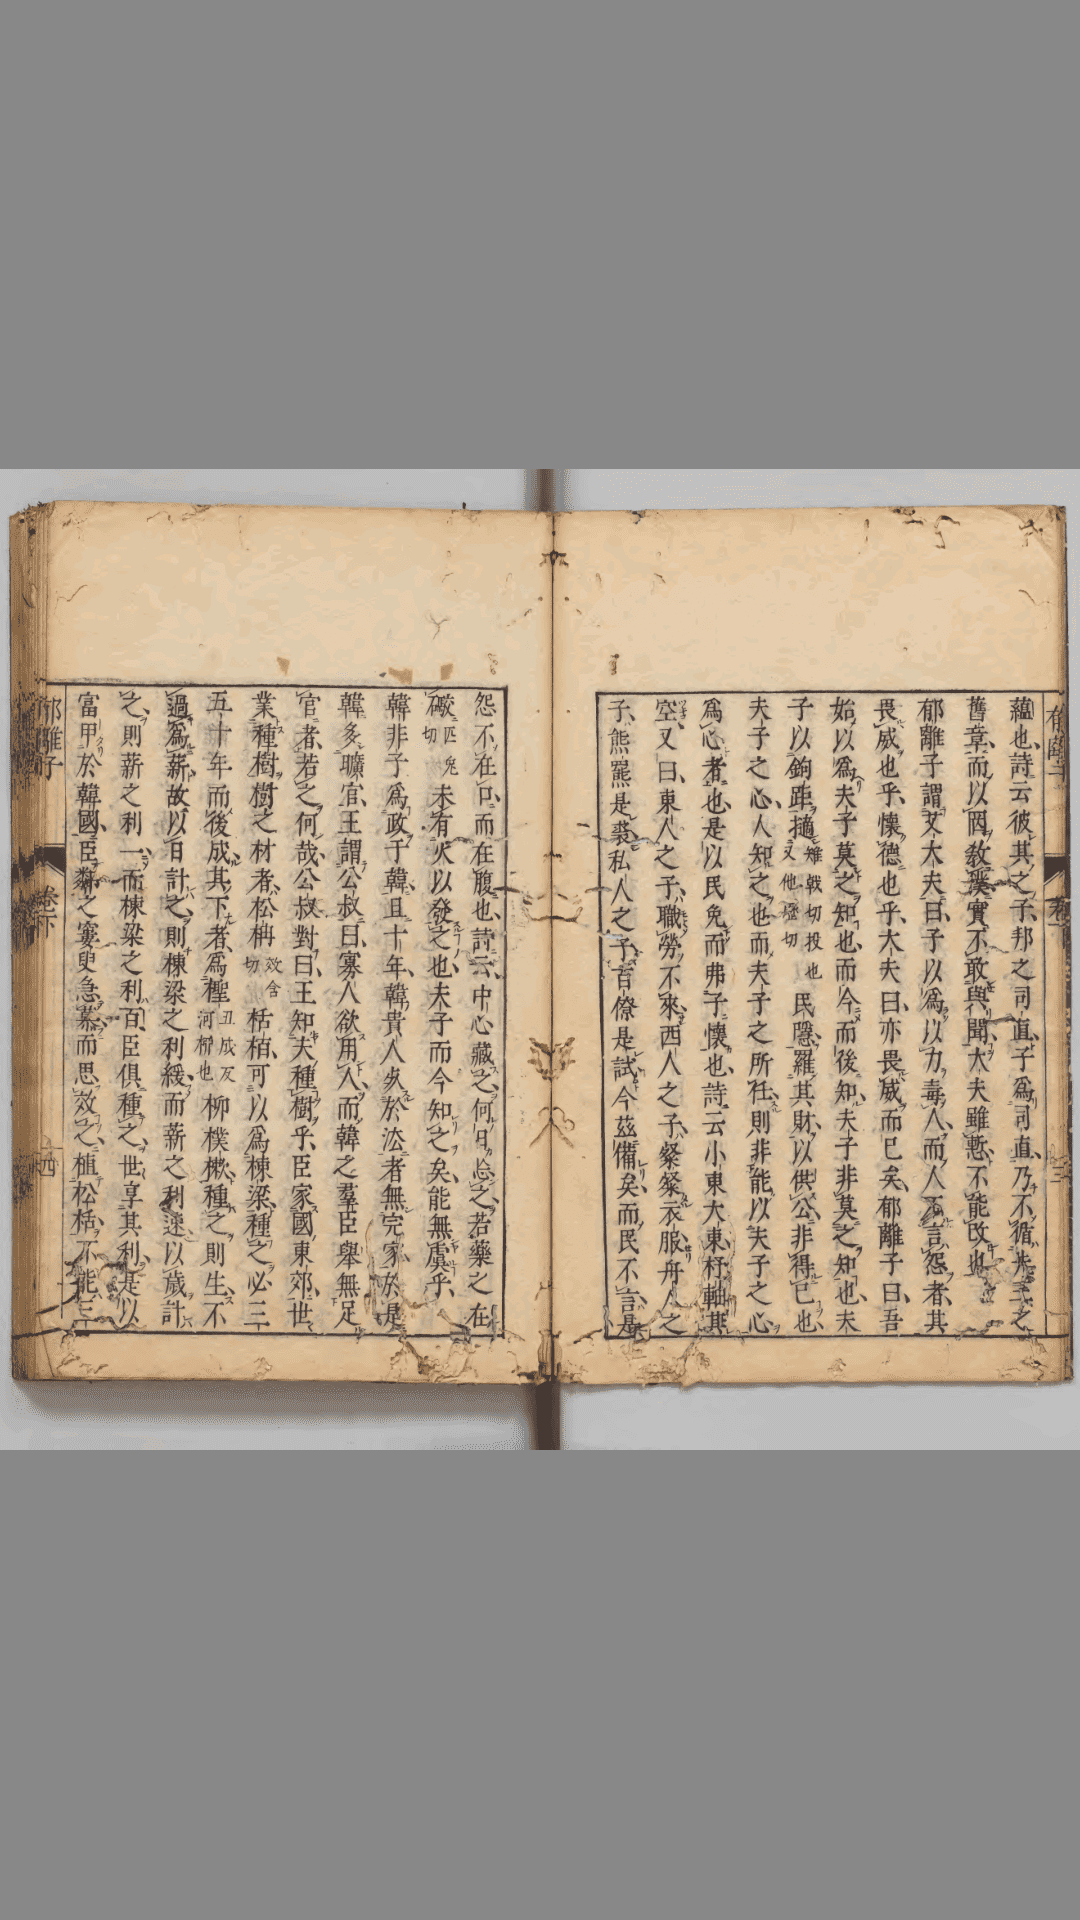 蘊也詩云彼其之子邦之司直子爲司直乃不循先王之
舊章而以罔敎溪實不敢與聞大夫雖慙不能改也
郁離子謂艾大夫曰子以爲以力毒人而人不言怨者其
畏威也乎懷德也乎大夫曰亦畏威而已矣郁離子曰吾
始以爲夫子莫之知也而今而後知夫子非莫之知也夫
子以鉤距擿雉戟切投也又他歷切民隱羅其財以供公非得已也
夫子之心人知之也而夫子之所任則非能以夫子之心
爲心者也是以民免而弗子懷也詩云小東大東杼軸其
空又曰東人之子職勞不來西人之子粲粲衣服舟人之
子熊羆是裘私人之子百僚是試今茲備矣而民不言是
怨不在口而在腹也詩云中心藏之何日忘之若藥之在
礮匹皃切未有火以發之也夫子而今知之矣能無虞乎
韓非子爲政于韓且十年韓貴人死於法者無完家於是
韓多曠官王謂公叔曰寡人欲用人而韓之羣臣舉無足
官者若之何哉公叔對曰王知夫種樹乎臣家國東郊世
業種樹樹之材者松柟 含切栝栢可以爲棟梁種之必三
五十年而後成其下者爲檉丑成反河柳也柳樸樕種之則生不
過爲薪故以日計之則棟梁之利緩而薪之利速以歲計
之則薪之利一而棟梁之利百臣俱種之世享其利是以
富甲於韓國臣鄰之窶叟急慕而思效之植松栝不能三
郁離子
卷下
四